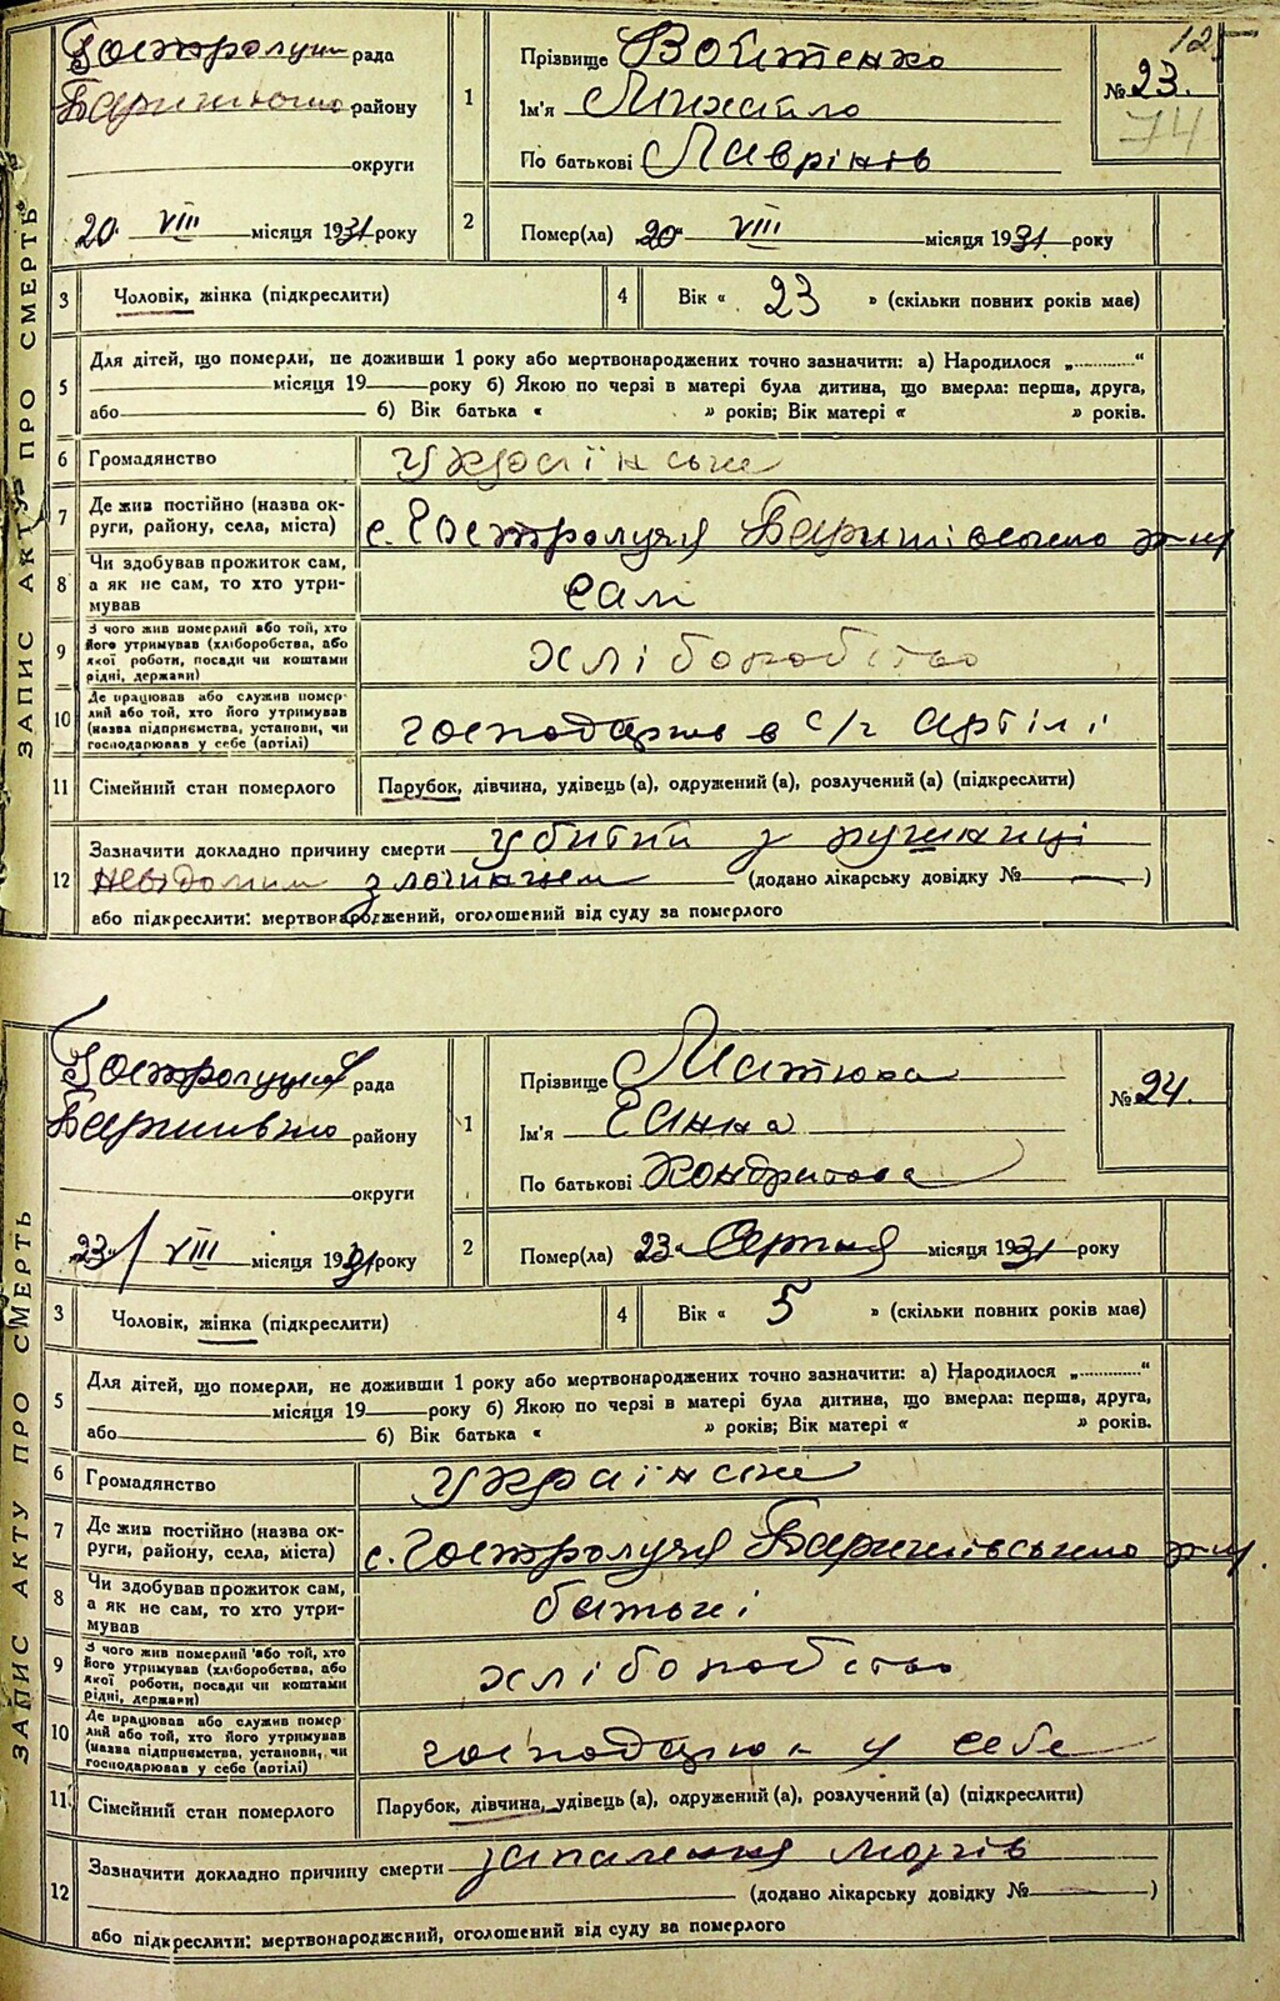 125
ЗАПИС АКТУ ПРО СМЕРТЬ
рада
району
округи
20 VIII місяця 1931 року
1 Прізвище Войтенко
Ім'я Михайло
По батькові Лаврінів
№ 23.
74
2 Помер(ла) 20 VIII місяця 1931 року
3 Чоловік, жінка (підкреслити)
4 Вік « 23 » (скільки повних років має)
5 Для дітей, що померли, не доживши 1 року або мертвонароджених точно зазначити: а) Народилося „............“
місяця 19 року б) Якою по черзі в матері була дитина, що вмерла: перша, друга,
або б) Вік батька « » років; Вік матері « » років.
6 Громадянство українське
7 Де жив постійно (назва ок-
руги, району, села, міста) с. Гостролуччя Баришівського р-ну
8 Чи здобував прожиток сам,
а як не сам, то хто утри-
мував сам
9 З чого жив померлий або той, хто
його утримував (хліборобства, або
якої роботи, посади чи коштами
рідні, держави) хліборобство
10 Де працював або служив помер-
лий або той, хто його утримував
(назва підприємства, установи, чи
господарював у себе (артілі) в с/г артілі
11 Сімейний стан померлого Парубок, дівчина, удівець (а), одружений (а), розлучений (а) (підкреслити)
12 Зазначити докладно причину смерти убитий з рушниці
невідомим злочинцем (додано лікарську довідку № — )
або підкреслити: мертвонароджений, оголошений від суду за померлого
ЗАПИС АКТУ ПРО СМЕРТЬ
рада
району
округи
23 VIII місяця 1931 року
1 Прізвище Матюха
Ім'я Ганна
По батькові Кондратова
№ 24.
2 Помер(ла) 23 Серпня місяця 1931 року
3 Чоловік, жінка (підкреслити)
4 Вік « 5 » (скільки повних років має)
5 Для дітей, що померли, не доживши 1 року або мертвонароджених точно зазначити: а) Народилося „............“
місяця 19 року б) Якою по черзі в матері була дитина, що вмерла: перша, друга,
або б) Вік батька « » років; Вік матері « » років.
6 Громадянство українське
7 Де жив постійно (назва ок-
руги, району, села, міста) с. Гостролуччя Баришівського р-ну.
8 Чи здобував прожиток сам,
а як не сам, то хто утри-
мував батькі
9 З чого жив померлий або той, хто
його утримував (хліборобства, або
якої роботи, посади чи коштами
рідні, держави) хліборобство
10 Де працював або служив помер-
лий або той, хто його утримував
(назва підприємства, установи, чи
господарював у себе (артілі) у себе
11 Сімейний стан померлого Парубок, дівчина, удівець (а), одружений (а), розлучений (а) (підкреслити)
12 Зазначити докладно причину смерти запалення мозгів
(додано лікарську довідку № — )
або підкреслити: мертвонароджений, оголошений від суду за померлого